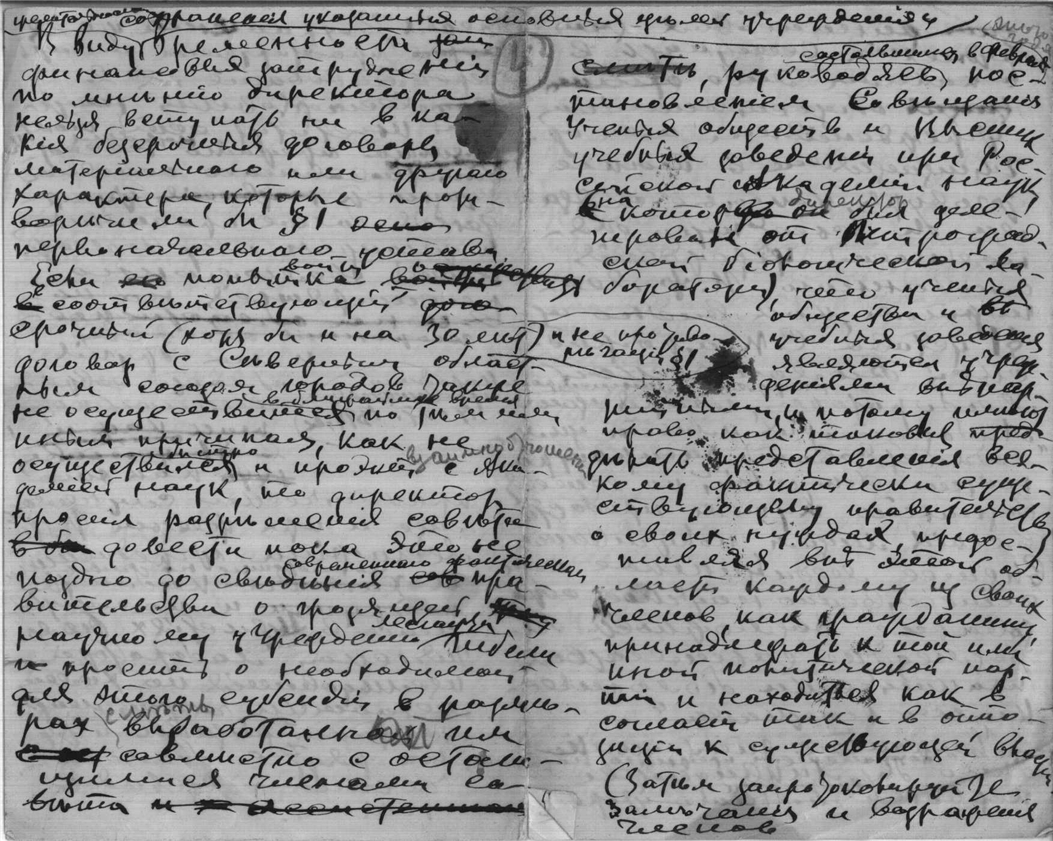 сохранения указанных основных целей учреждения
В виду временности
финансовых затруднений
по мнению директора
нельзя вступать ни в ка-
кия безсрочныя договоры
материального или другого
характера, которые прои-
§ 1
первоначального устава
Если попытка войти
в соответствующий
срочный (хотя бы и на 30 лет) и не
§ 1
договор с Северным област-
ным союзом городов также
не осуществится в ближайшее время по тем или
иным причинам, как не
осуществился и проект с Ака-
демией наук, то директор
просил разрешения совета
довести пока это не
поздно до сведения современного фактически пра-
вительства о грозящей
научному учреждению гибели
и просить о необходимой
для этого субсидии в разме-
рах сметы выработанной им
совместно с осталь-
ными членами со-
вета
состоявшимся в феврале
руководясь пос-
тановлением Совещания
Ученых обществ и Высших
учебных заведений при Рос-
сийской Академии Наук
на котором директор был деле-
гирован от Петроград-
ской биологической ла-
боратории, что ученыя
общества и
учебныя заведения
являются учреж-
дениями вне пар-
тийными, и потому имеют
право как таковыя пред-
представления вся-
кому фактически суще-
ствующему правительству
о своих нуждах предос-
тавляя вне этой об-
ласти каждому из своих
членов, как гражданину
принадлежать к той или
иной политической пар-
тии и находиться как в
согласии так и в оппо-
зиции к существующей власти
(Затем запротоколируйте
замечания и возражения
членов